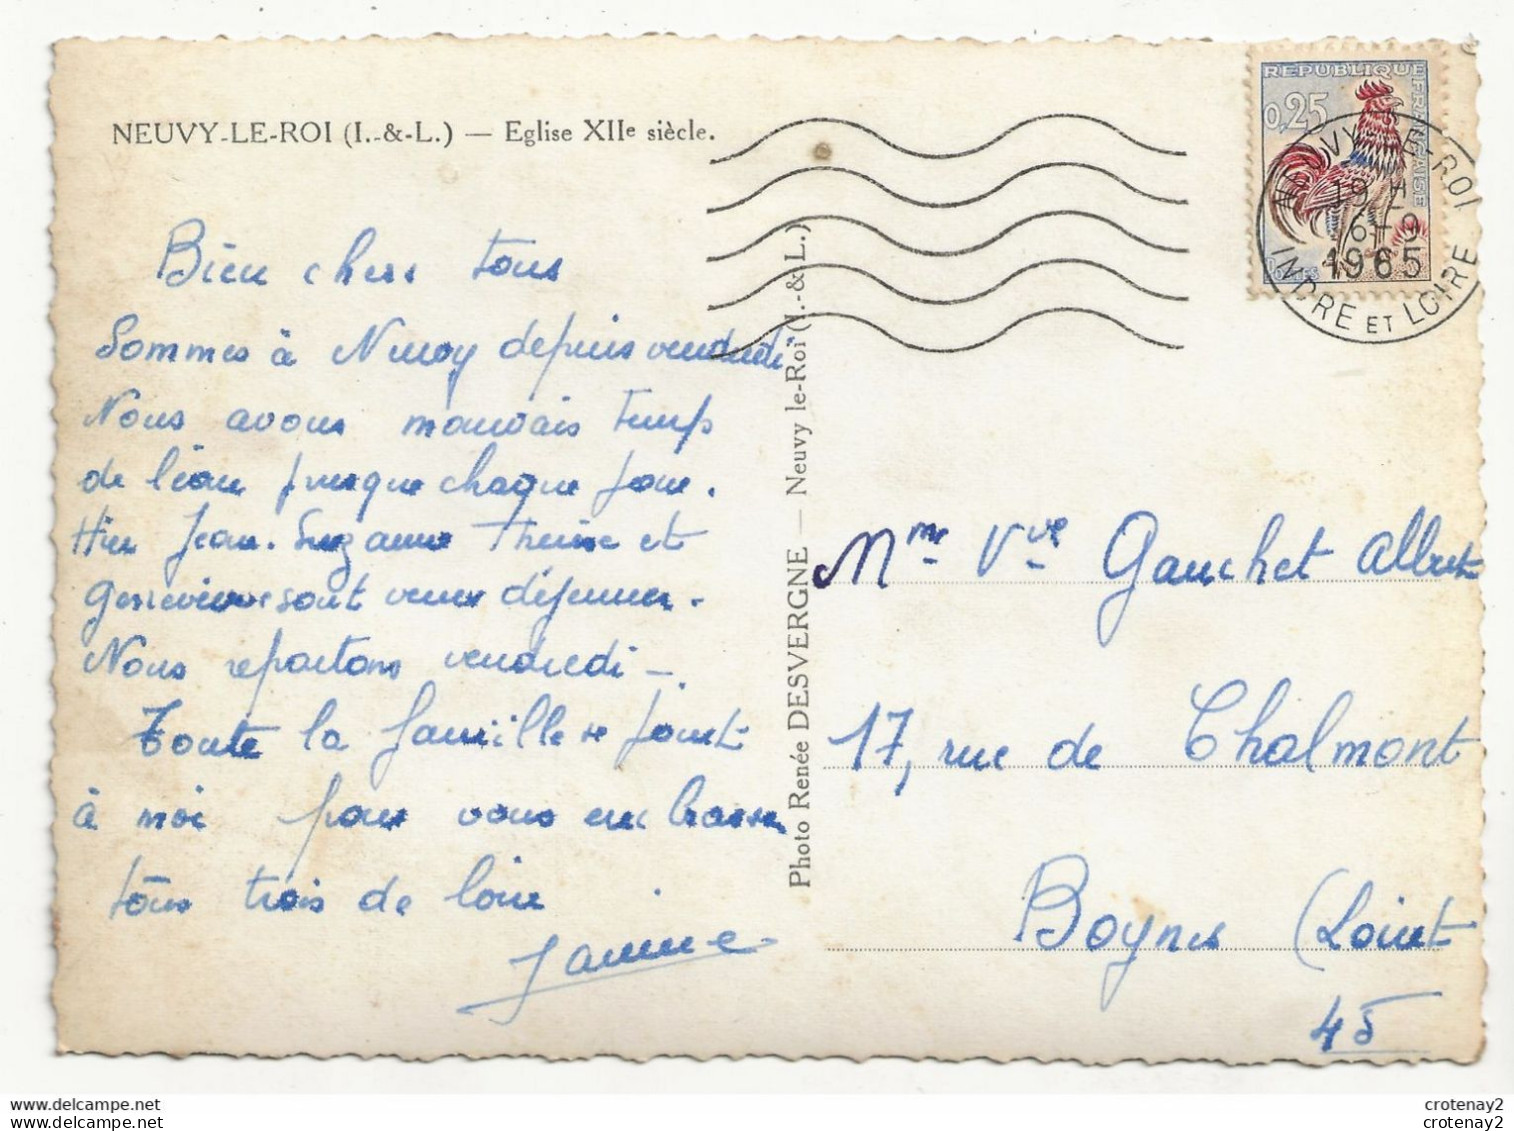 NEUVY-LE-ROI (I.-&-L.) — Eglise XIIe siècle.
Bien chers tous
Sommes à Neuvy depuis vendredi
Nous avons mauvais temps
de l'eau presque chaque jour.
Hier Jean. Suzanne Thérèse et
Geneviève sont venus déjeuner.
Nous repartons vendredi —.
Toute la famille se joint
à moi pour vous embrasser
tous trois de loin
Janine
Photo Renée DESVERGNE — Neuvy le-Roi (I.-&-L.)
REPUBLIQUE
FRANÇAISE
0,25
POSTES
NEUVY-LE-ROI
19 H
6-9
1965
INDRE ET LOIRE
Mme Vve Gauchet Albert
17, rue de Chalmont
Boynes (Loiret
45
crotenay2
crotenay2